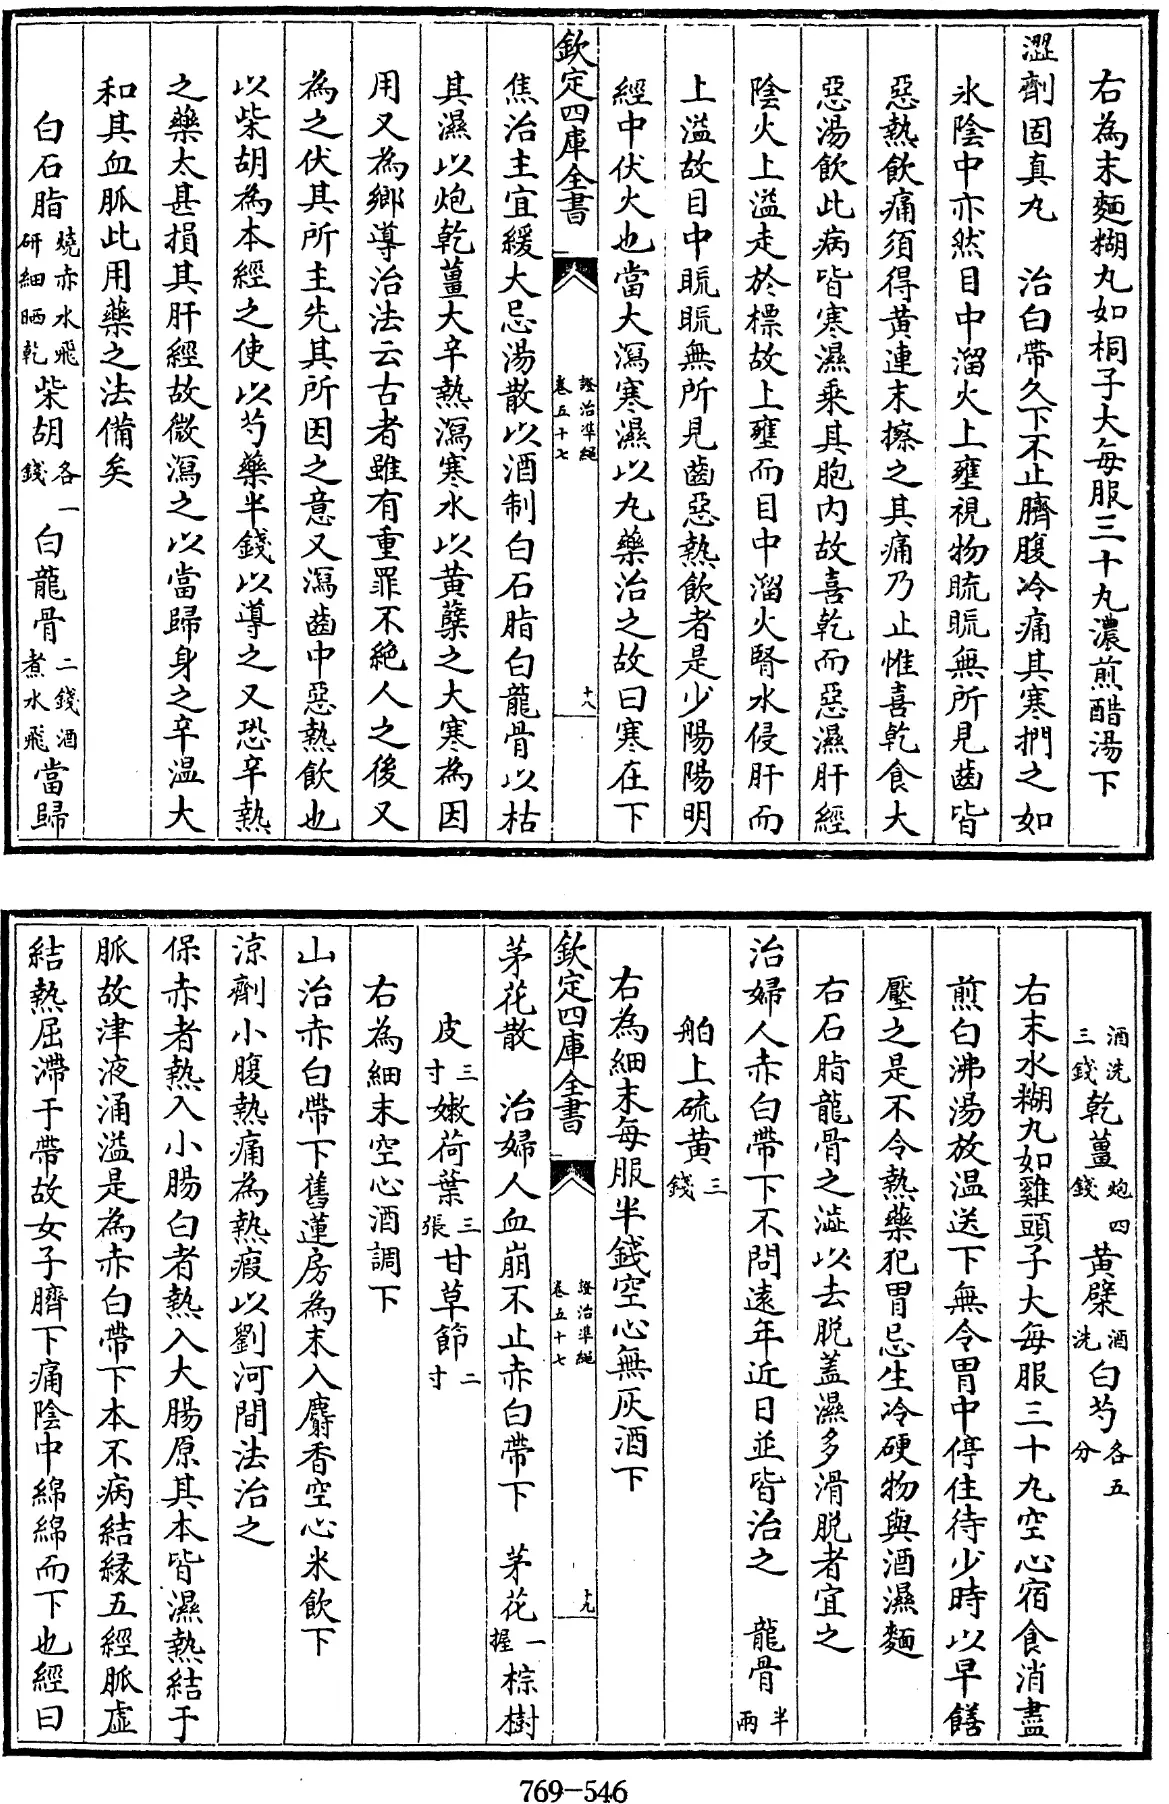 右為末麵糊丸如桐子大每服三十丸濃煎醋湯下
澀劑固真丸　治白帶久下不止臍腹冷痛其寒捫之如
氷陰中亦然目中溜火上壅視物䀮䀮無所見齒皆
惡熱飲痛須得黄連末擦之其痛乃止惟喜乾食大
惡湯飲此病皆寒濕乗其胞内故喜乾而惡濕肝經
陰火上溢走於標故上壅而目中溜火腎水侵肝而
上溢故目中䀮䀮無所見齒惡熱飲者是少陽陽明
經中伏火也當大瀉寒濕以丸藥治之故曰寒在下
欽定四庫全書
證治準繩
卷五十七
十八
焦治主宜緩大忌湯散以酒制白石脂白龍骨以枯
其濕以炮乾薑大辛熱瀉寒水以黄蘗之大寒為因
用又為鄉導治法云古者雖有重罪不絶人之後又
為之伏其所主先其所因之意又瀉齒中惡熱飲也
以柴胡為本經之使以芍藥半錢以導之又恐辛熱
之藥太甚損其肝經故微瀉之以當歸身之辛温大
和其血脈此用藥之法備矣
白石脂燒赤水飛研細晒乾柴胡各一錢白龍骨二錢酒煮水飛當歸
酒洗三錢乾薑炮四錢黄檗酒洗白芍各五分
右末水糊丸如雞頭子大每服三十丸空心宿食消盡
煎白沸湯放温送下無令胃中停住待少時以早饍
壓之是不令熱藥犯胃忌生冷硬物與酒濕麵
右石脂龍骨之澁以去脱蓋濕多滑脱者宜之
治婦人赤白帶下不問遠年近日並皆治之　龍骨半兩
舶上硫黄三錢
右為細末每服半錢空心無灰酒下
欽定四庫全書
證治準繩
卷五十七
十九
茅花散　治婦人血崩不止赤白帶下　茅花一握棕樹
皮三寸嫩荷葉三張甘草節二寸
右為細末空心酒調下
山治赤白帶下舊蓮房為末入麝香空心米飲下
涼劑小腹熱痛為熱瘕以劉河間法治之
保赤者熱入小腸白者熱入大腸原其本皆濕熱結于
脈故津液涌溢是為赤白帶下本不病結縁五經脈虚
結熱屈滯于帶故女子臍下痛陰中綿綿而下也經曰
769-546